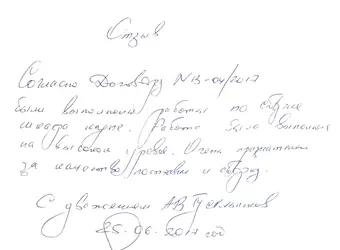 Отзыв
Согласно Договору N13-04/2017
были выполнены работы по сборке
шкафа купе. Работа была выполнена
на высоком уровне. Очень признателен
за качество поставки и сборку.
С уважением АВ
25.06.2017 год